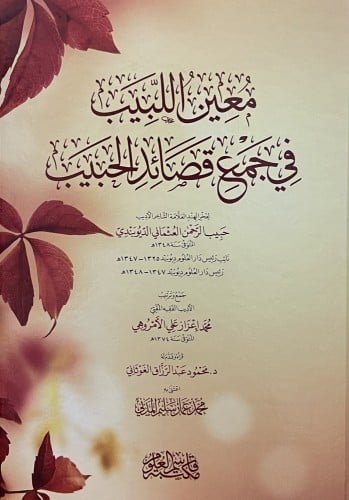 مُعِينُ اللَّبِيبِ
فِي جَمْعِ قَصَائِدِ الحَبِيبِ
لفخر الهند العلامة الشاعر الأديب
حَبِيب الرَّحْمٰن العُثْمَانِي الدِّيُوبَنْدِي
المتوفى سنة ١٣٤٨هـ
نائب رئيس دار العلوم ديوبند ١٣٢٥ - ١٣٤٧هـ
رئيس دار العلوم ديوبند ١٣٤٧ - ١٣٤٨هـ
جمع وترتيب
الأديب الفقيه المفتي
محمد إعزاز علي الأمروهي
المتوفى سنة ١٣٧٤هـ
قرأه وقدم له
د. محمود عبد الرزاق الغوثاني
اعتنى به
محمد عمار سليم المدني
مكتبة قاسم العلوم